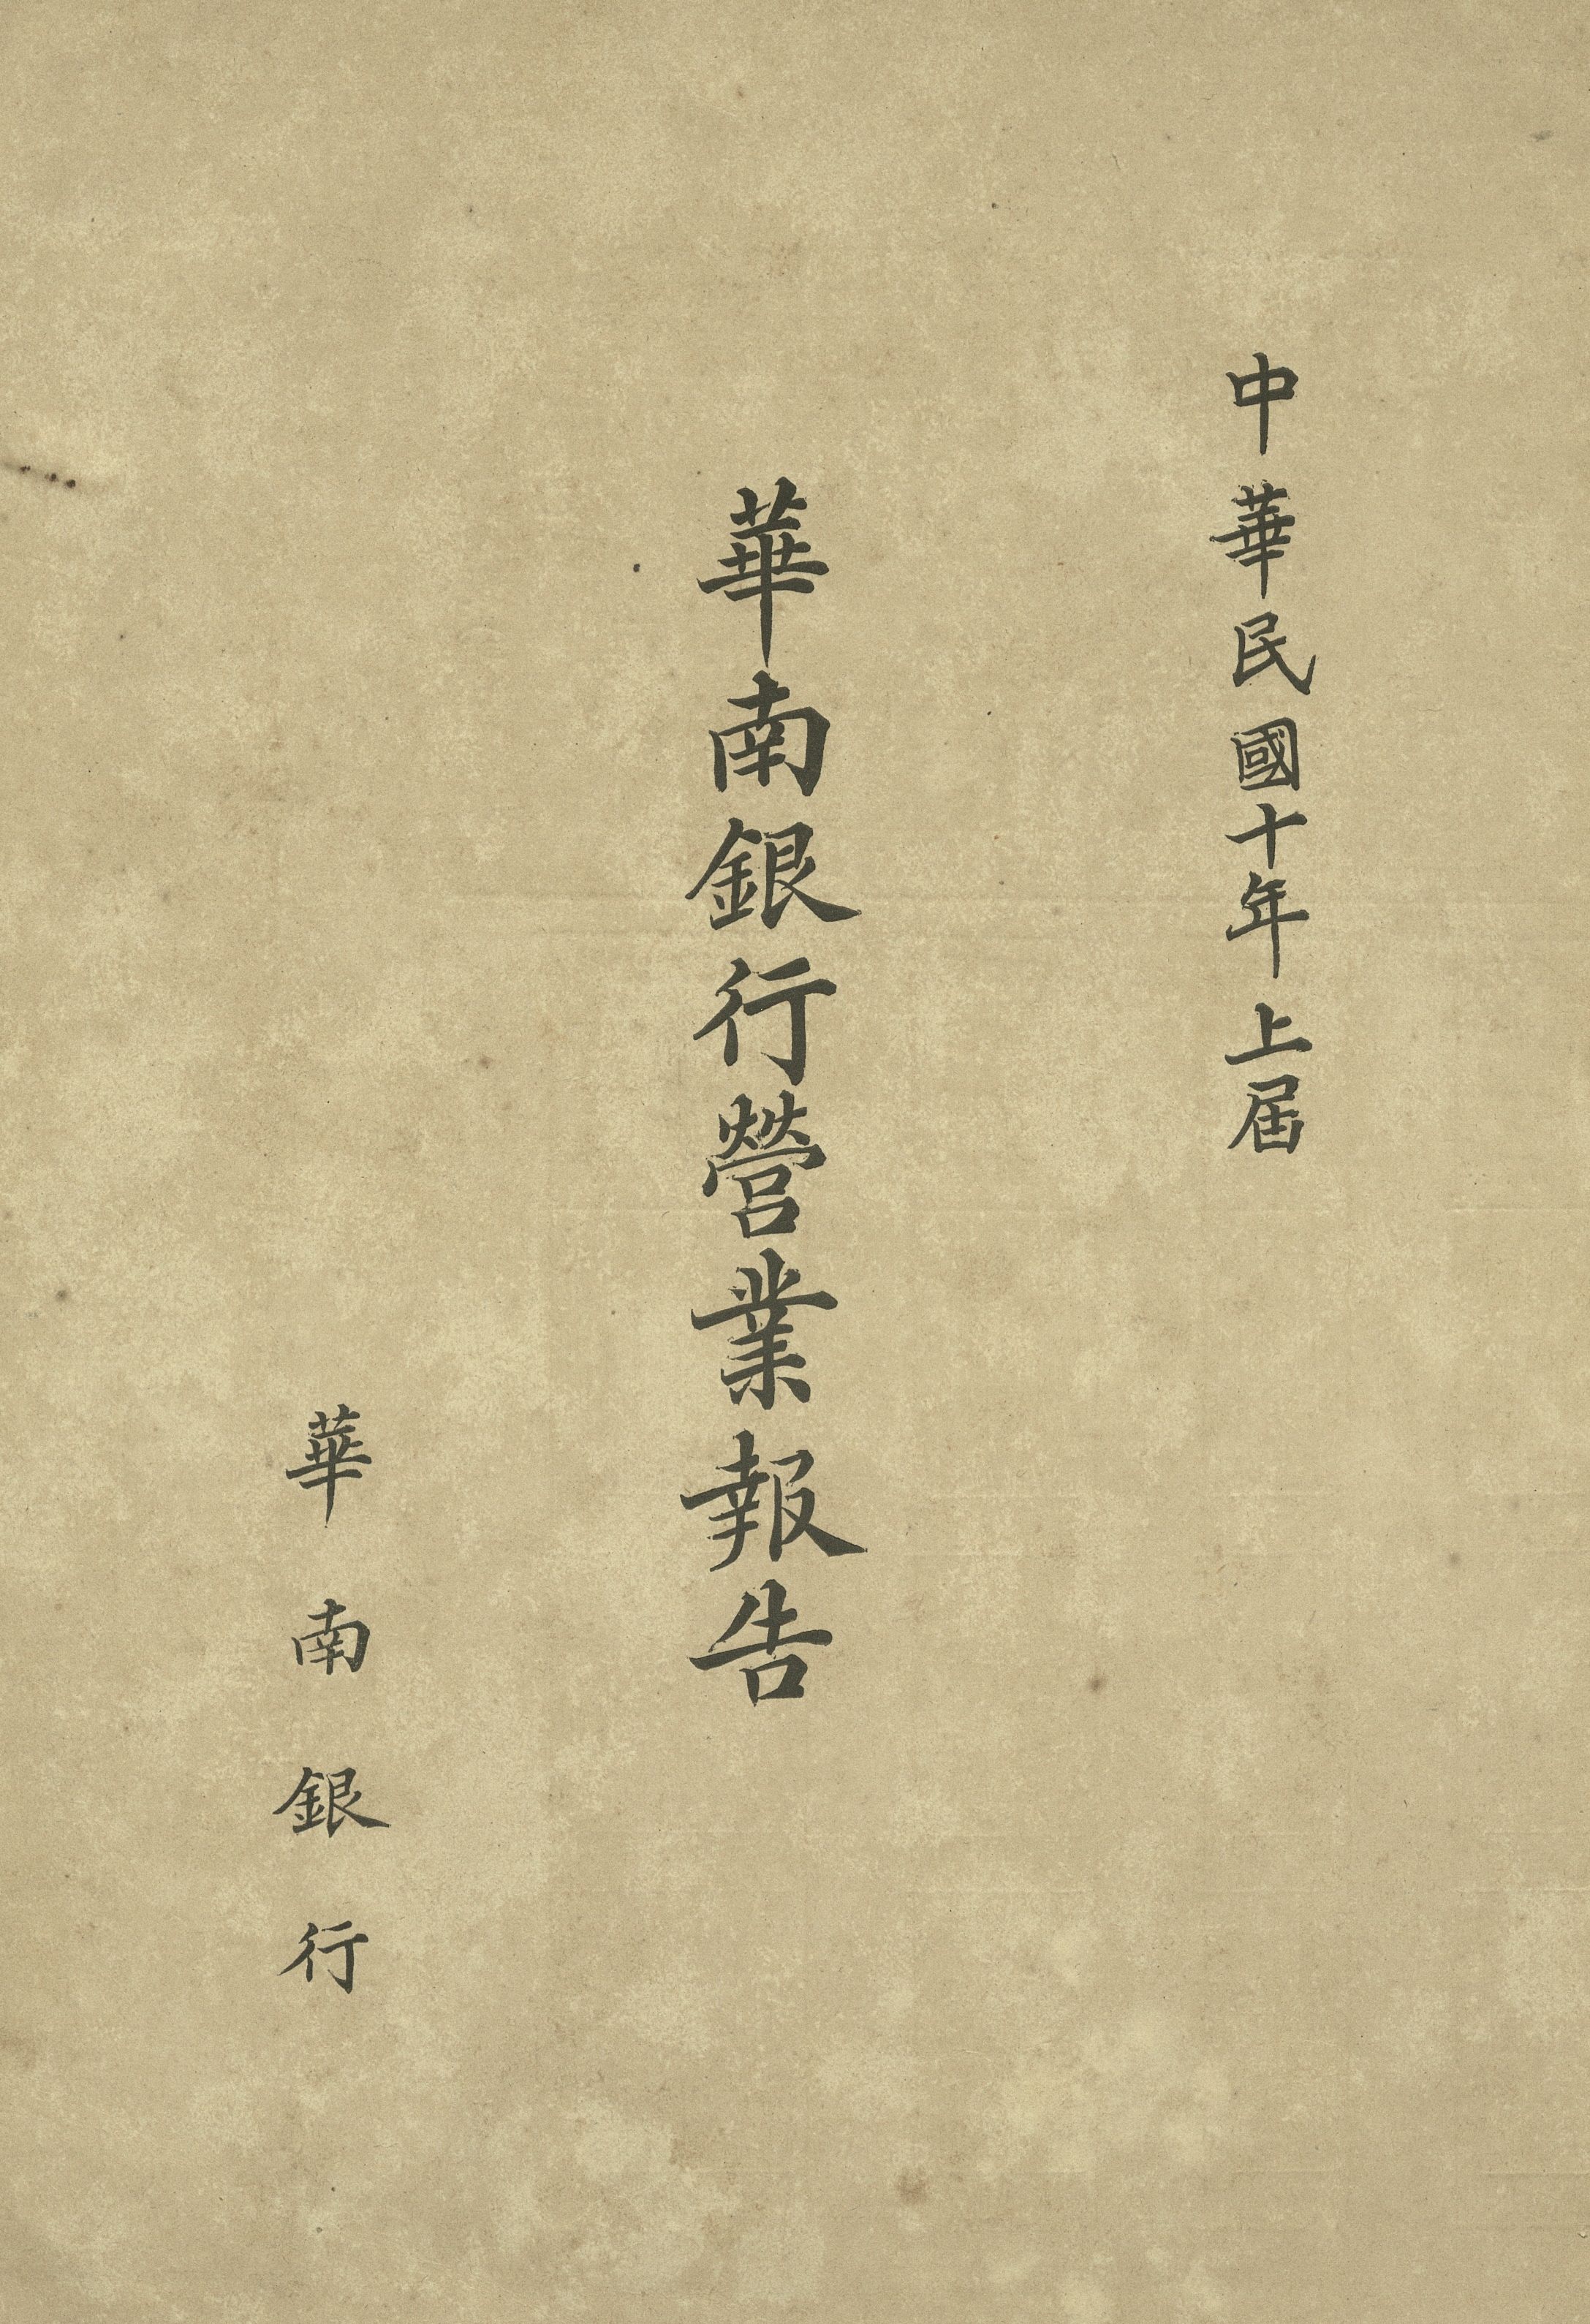 中華民國十年上屆
華南銀行營業報告
華南銀行